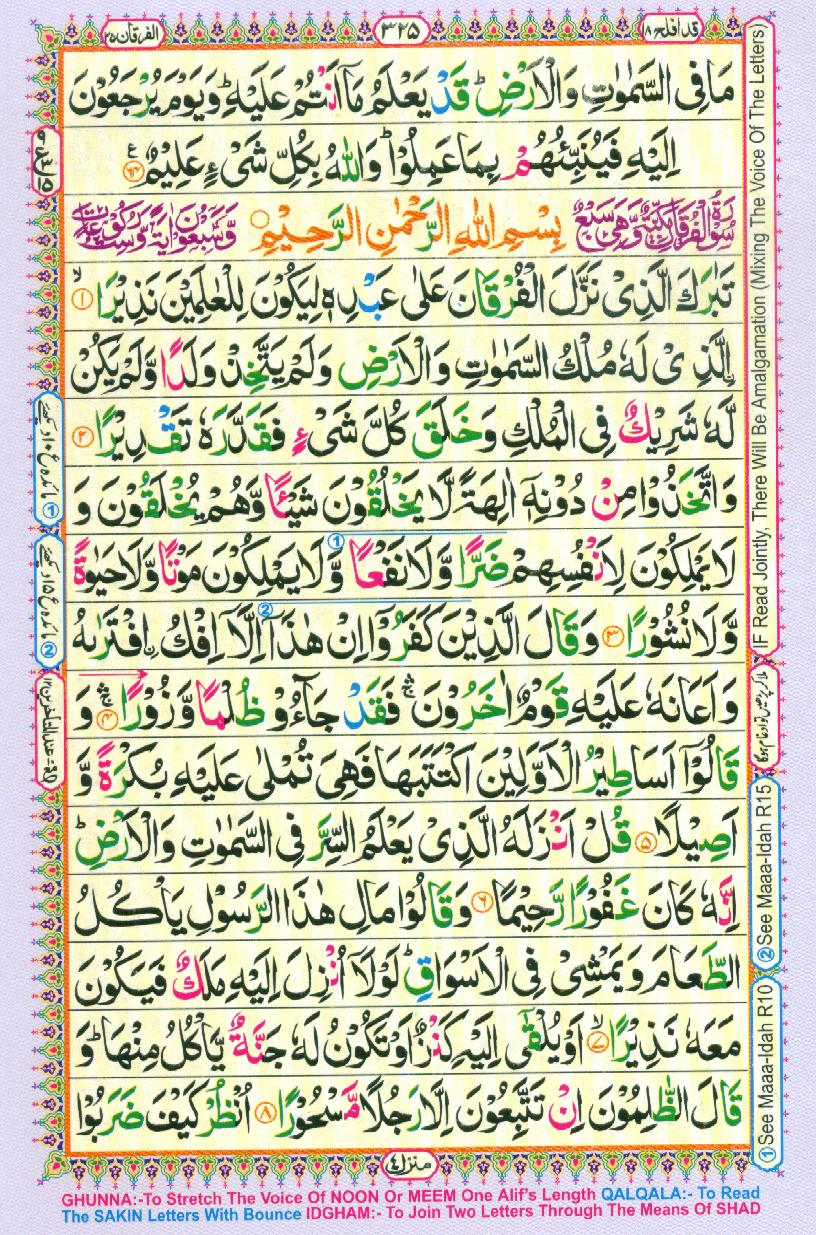 قد افلح ۱۸
۳۲۵
الفرقان ۲۵
مَا فِى السَّمٰوٰتِ وَالْاَرْضِ ؕ قَدْ يَعْلَمُ مَاۤ اَنْتُمْ عَلَيْهِ ؕ وَيَوْمَ يُرْجَعُوْنَ
اِلَيْهِ فَيُنَبِّئُهُمْ بِمَا عَمِلُوْا ؕ وَاللّٰهُ بِكُلِّ شَىْءٍ عَلِيْمٌ ۝۶۴
بِسْمِ اللّٰهِ الرَّحْمٰنِ الرَّحِيْمِ
تَبٰرَكَ الَّذِىْ نَزَّلَ الْفُرْقَانَ عَلٰى عَبْدِهٖ لِيَكُوْنَ لِلْعٰلَمِيْنَ نَذِيْرًا ۙ‏ ۝۱
اِۨلَّذِىْ لَهٗ مُلْكُ السَّمٰوٰتِ وَالْاَرْضِ وَلَمْ يَتَّخِذْ وَلَدًا وَّلَمْ يَكُنْ
لَّهٗ شَرِيْكٌ فِى الْمُلْكِ وَخَلَقَ كُلَّ شَىْءٍ فَقَدَّرَهٗ تَقْدِيْرًا ۝۲
وَاتَّخَذُوْا مِنْ دُوْنِهٖۤ اٰلِهَةً لَّا يَخْلُقُوْنَ شَيْئًا وَّهُمْ يُخْلَقُوْنَ وَ
لَا يَمْلِكُوْنَ لِاَنْفُسِهِمْ ضَرًّا وَّلَا نَفْعًا وَّلَا يَمْلِكُوْنَ مَوْتًا وَّلَا حَيٰوةً
وَّلَا نُشُوْرًا ۝۳ وَقَالَ الَّذِيْنَ كَفَرُوْۤا اِنْ هٰذَاۤ اِلَّاۤ اِفْكُ ۨافْتَرٰىهُ
وَاَعَانَهٗ عَلَيْهِ قَوْمٌ اٰخَرُوْنَ ۛۚ فَقَدْ جَآءُوْ ظُلْمًا وَّزُوْرًا ۛۚ ۝۴ وَ
قَالُوْۤا اَسَاطِيْرُ الْاَوَّلِيْنَ اكْتَتَبَهَا فَهِىَ تُمْلٰى عَلَيْهِ بُكْرَةً وَّ
اَصِيْلًا ۝۵ قُلْ اَنْزَلَهُ الَّذِىْ يَعْلَمُ السِّرَّ فِى السَّمٰوٰتِ وَالْاَرْضِ ؕ
اِنَّهٗ كَانَ غَفُوْرًا رَّحِيْمًا ۝۶ وَقَالُوْا مَالِ هٰذَا الرَّسُوْلِ يَاْكُلُ
الطَّعَامَ وَيَمْشِىْ فِى الْاَسْوَاقِ ؕ لَوْلَاۤ اُنْزِلَ اِلَيْهِ مَلَكٌ فَيَكُوْنَ
مَعَهٗ نَذِيْرًا ۙ ۝۷ اَوْ يُلْقٰٓى اِلَيْهِ كَنْزٌ اَوْ تَكُوْنُ لَهٗ جَنَّةٌ يَّاْكُلُ مِنْهَا ؕ وَ
قَالَ الظّٰلِمُوْنَ اِنْ تَتَّبِعُوْنَ اِلَّا رَجُلًا مَّسْحُوْرًا ۝۸ اُنْظُرْ كَيْفَ ضَرَبُوْا
منزل ۴
IF Read Jointly, There Will Be Amalgamation (Mixing The Voice Of The Letters)
② See Maaa-Idah R15
① See Maaa-Idah R10
GHUNNA:-To Stretch The Voice Of NOON Or MEEM One Alif's Length QALQALA:- To Read
The SAKIN Letters With Bounce IDGHAM:- To Join Two Letters Through The Means Of SHAD